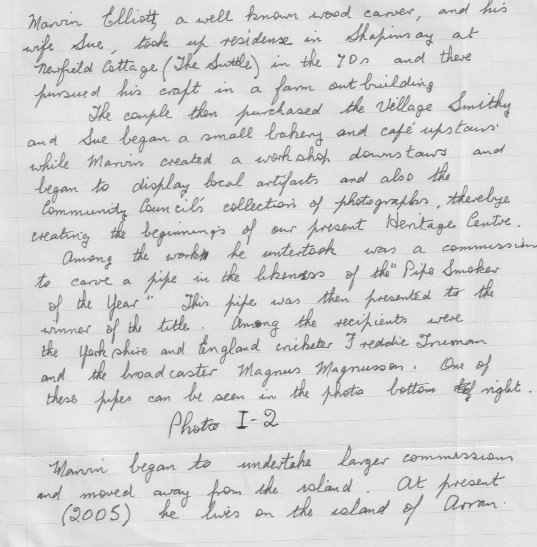 Marvin Elliott, a well known wood carver, and his
wife Sue, took up residense in Shapinsay at
Newfield Cottage (The Suttle) in the 70s and there
pursued his craft in a farm outbuilding
The couple then purchased the Village Smithy
and Sue began a small bakery and café upstairs
while Marvin created a workshop downstairs and
began to display local artifacts and also the
Community Council's collection of photographs, therebye
creating the beginnings of our present Heritage Centre.
Among the work he untertook was a commission
to carve a pipe in the likeness of the "Pipe Smoker
of the Year" This pipe was then presented to the
winner of the title. Among the recipients were
the Yorkshire and England cricketer Freddie Truman
and the broadcaster Magnus Magnusson. One of
these pipes can be seen in the photo bottom right.
Photo I-2
Marvin began to undertake larger commissions
and moved away from the island. At present
(2005) he lives on the island of Arran.